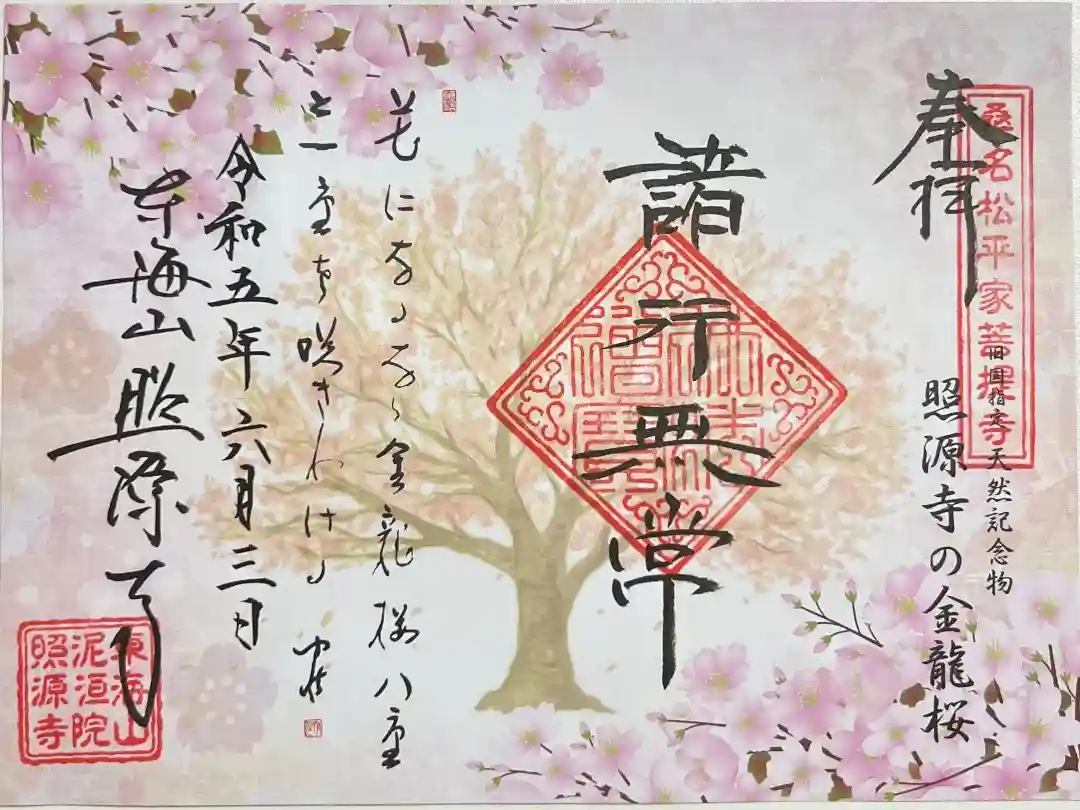 奉拝
桑名松平家菩提寺
旧国指定天然記念物
照源寺の金龍桜
諸行無常
花になるなら金龍桜八重
と一重を咲きわける
令和五年六月三日
東海山照源寺
東海山
泥洹院
照源寺